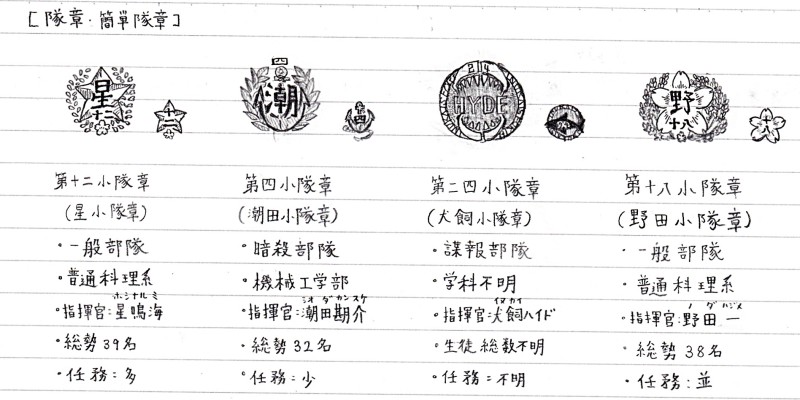 [隊章・簡單隊章]
星
十二
十二
四
潮
四
24
HYDE
野
十八
十八
第十二小隊章
(星小隊章)
・一般部隊
・普通科理系
ホシナルミ
・指揮官:星鳴海
・総勢39名
・任務:多
第四小隊章
(潮田小隊章)
・暗殺部隊
・機械工学部
シオダカンスケ
・指揮官:潮田勘介
・総勢32名
・任務:少
第二四小隊章
(犬飼小隊章)
・諜報部隊
・学科不明
イヌカイ
・指揮官:犬飼ハイド
・生徒総数不明
・任務:不明
第十八小隊章
(野田小隊章)
・一般部隊
・普通科理系
ノダハジメ
・指揮官:野田一
・総勢38名
・任務:並